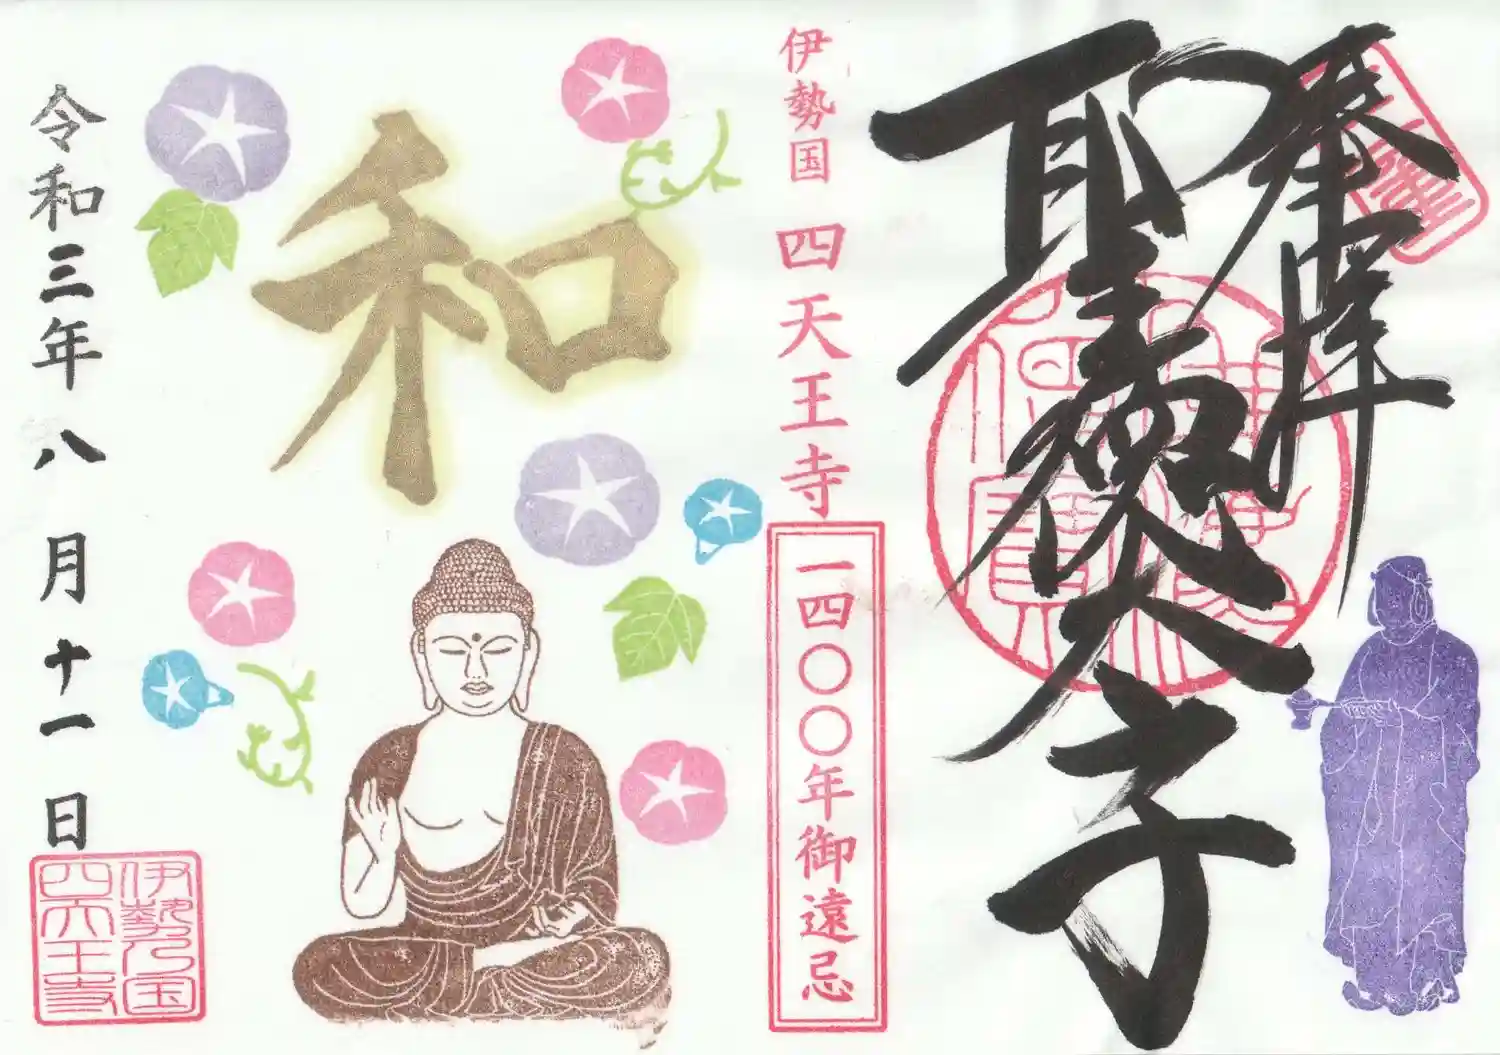 奉拝
聖徳太子
伊勢国 四天王寺
一四〇〇年御遠忌
和
令和三年八月十一日
伊勢乃国
四天王寺